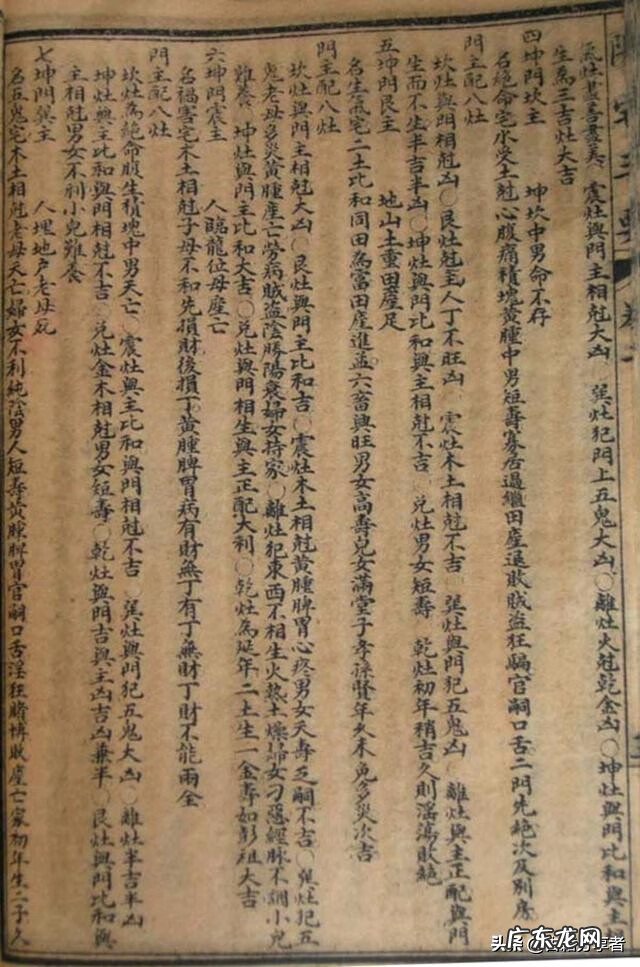 氣灶盡善盡美　震灶與門主相尅大凶〇巽灶犯門上五鬼大凶〇離灶火尅乾金凶〇坤灶與門比和與主
生為三吉灶大吉
四坤門坎主　　坤坎中男命不存
名絶命宅水受土尅心腹痛積塊黃腫中男短壽寡居過繼田産退敗賊盜狂騙官嗣口舌二門先絶次及別房
門主配八灶
坎灶與門相尅凶〇艮灶尅主人丁不旺凶　震灶木土相尅不吉　巽灶與門犯五鬼凶　離灶與主正配與門
生而不生半吉半凶〇坤灶與門比和與主相尅不吉〇兌灶男女短壽　乾灶初年稍吉久則淫蕩敗絶
五坤門艮主　　地山土重田産足
名生氣宅二土比和同田為富田産進益六畜興旺男女高壽兒女滿堂子孝孫賢年久未免多災次吉
門主配八灶
坎灶與門主相尅大凶〇艮灶與門主比和吉〇震灶木土相尅黃腫脾胃心疼男女夭壽乏嗣不吉〇巽灶犯五
鬼老母多災黃腫産亡勞病賊盜陰勝陽衰婦女持家〇離灶犯東西不相生火熱土燥婦女刁惡經脉不調小兒
難養　坤灶與門主比和大吉〇兌灶與門相生與主正配大利〇乾灶為延年二土生一金壽如彭祖大吉
六坤門震主　　人臨龍位母産亡
名禍害宅木土相尅子母不和先損財後損丁黃腫脾胃病有財無丁有丁無財丁財不能兩全
門主配八灶
坎灶為絶命腹生積塊中男夭亡〇震灶與主比和與門相尅不吉　巽灶與門犯五鬼大凶〇離灶半吉半凶
坤灶與主比和與門相尅不吉〇兌灶金木相尅男女短壽〇乾灶與門吉與主凶吉凶兼半〇艮灶與門比和與
主相尅男女不利小兒難養
七坤門巽主　　人埋地户老母死
名五鬼宅木土相尅老母夭亡婦女不利純陰男人短壽黃腫脾胃官嗣口舌淫狂賭博敗産亡家初年生二子久
头条 @
广东龙网